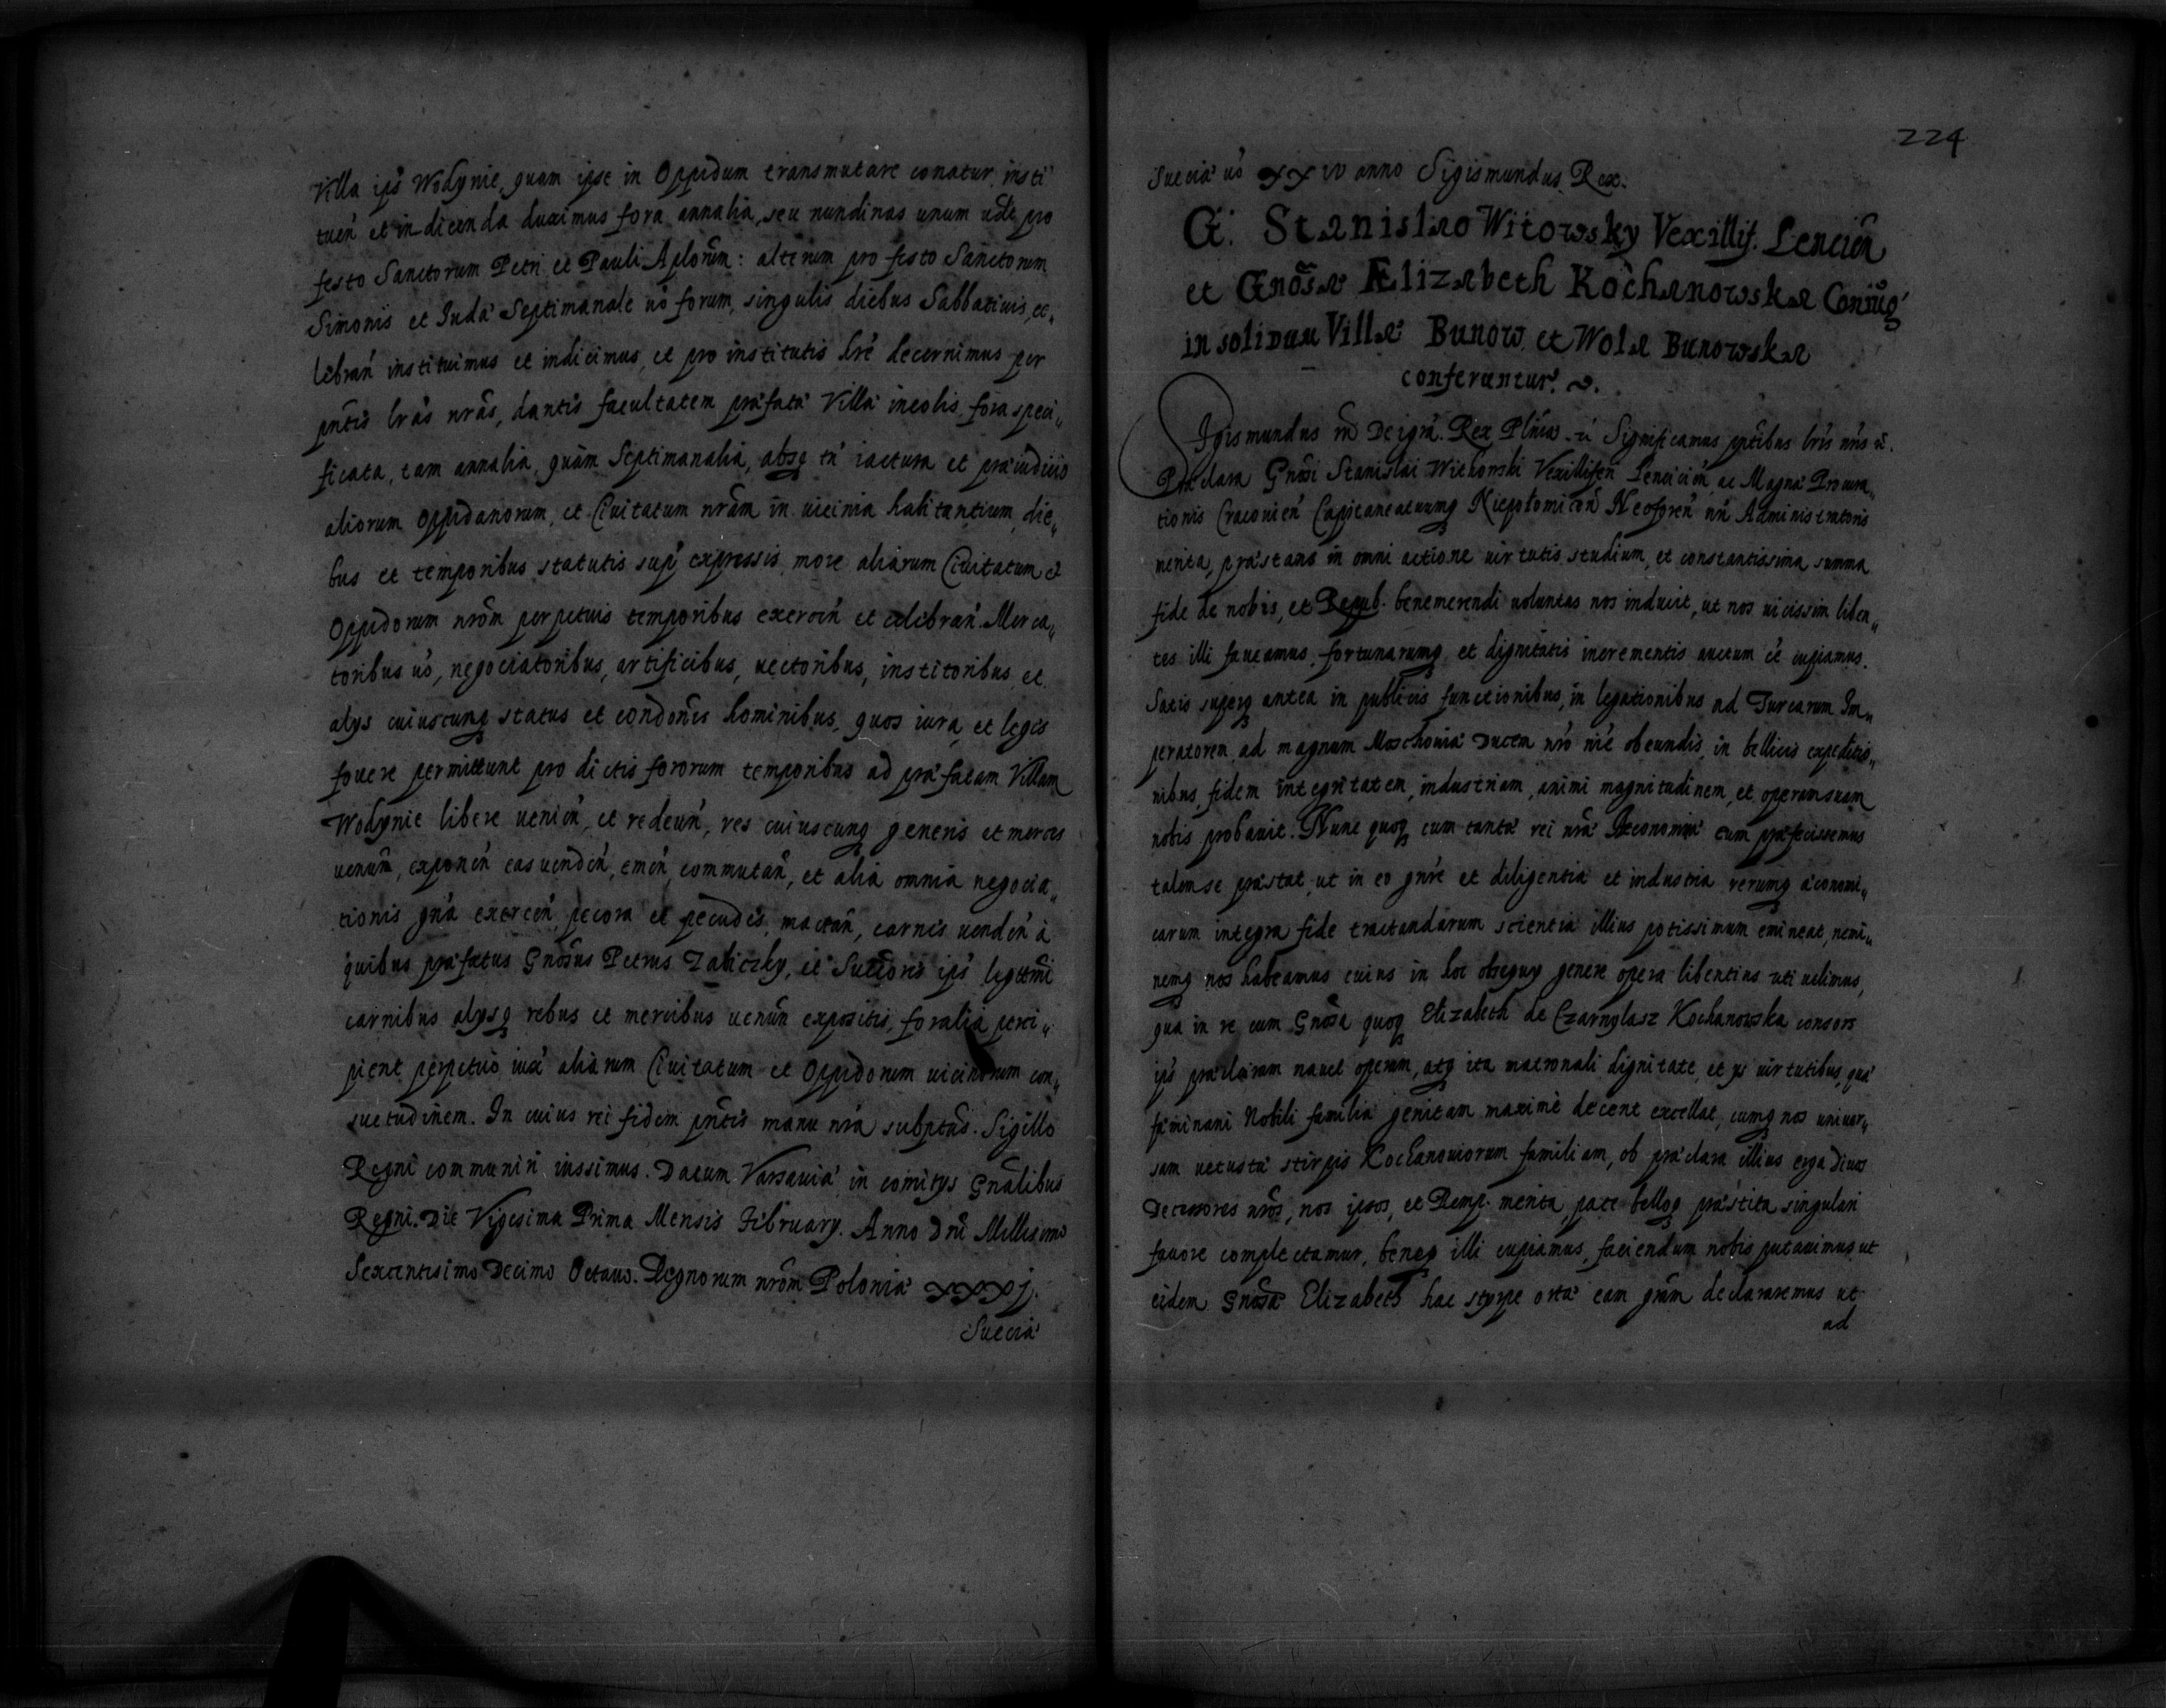 Villa ips Wodynie, quam ipse in Oppidum transmutare conatur, insti
tuen̄ et indicenda duximus fora annalia, seu nundinas unum vdł pro
festo Sanctorum Petri et Pauli Aplorūm: alterum pro festo Sanctorum
Simonis et Judæ Septimanale vō forum, singulis diebus Sabbativis, ce„
lebran̄ instituimus et indicimus, et pro institutis hrē decernimus per
pn̄tis lrās nrās, dantis facultatem præfatæ Villæ incolis, fora speci„
ficata, tam annalia, quàm Septimanalia, absq tn̄ iactura et præiudicio
aliorum Oppidanorum, et Civitatum nrām in vicinia habitantium, die„
bus et temporibus statutis supe expressis, more aliarum Civitatum et
Oppidorum nrōm perpetuis temporibus exercen̄ et celebran̄. Merca„
toribus vō, negociatoribus, artificibus, vectoribus, institoribus, et
alys cuiuscunq status et condōnis hominibus, quos iura, et legis
fovere permittunt pro dictis fororum temporibus ad præfatam Villam
Wodynie libere venien̄, et redeun̄, res cuiuscunq generis et merces
venum̄, exponen̄ eas venden̄, emen̄, commutan̄, et alia omnia negocia„
tionis gn̄a exercen̄, pecora et pecudes, mactan̄, carnes venden̄ à
quibus præfatus Gnōsus Petrus Zaliczky, et Succōres ips̄ legttmī
carnibus alysq rebus et mercibus venūm expositis, foralia perci„
pient perpetuò iuxà aliarum Civitatum et Oppidorum vicinorum con„
suetudinem. In cuius rei fidem pn̄tis manu nrā subptās. Sigillo
Regni communirī iussimus. Datum Varsaviæ in comitys Gnālibus
Regni. Die Vigesima Prima Mensis February. Anno Dnī Millesimo
Sexcentisimo Decimo Octavo. Regnorum nrōm Poloniæ XXXj.
Sueciæ
224
Sueciæ vō XXIV anno Sigismundus Rex.
G. Stanislao Witowsky Vexillif. Lencien̄
et Gnōsæ Elizabeth Kochanowska Coniug
in solidum Villæ Bunow et Wola Bunowska
conferuntur.
Sigismundus III Dei grā. Rex Plniæ. Significamus pn̄tibus lrīs nrīs
Præclara Gnōsi Stanislai Witowski Vexilliferi Lencicien̄, ac Magnæ Procura„
tionis Cracovien̄ Capitaneatuumq Niepołomicen̄ Neoforen̄ nrī Administratoris
merita, præstans in omni actione virtutis studium, et constantissima summa
fide de nobis, et Repub. benemerendi voluntas nos inducit, ut nos vicissim liben„
tes illi faveamus, fortunarumq et dignitatis incrementis auctum eē cupiamus.
Satis superq antea in publicis functionibus, in legationibus ad Turcarum Im„
peratorem, ad magnum Moschoviæ Ducem nrō nīe obeundis, in bellicis expeditio„
nibus, fidem integritatem, industriam, animi magnitudinem, et operam suam
nobis probavit. Nunc quoq cum tantæ rei nrǣ Aeconomiæ eum præfecissemus
talem se præstat, ut in eo gn̄re et diligentia et industria, rerumq æconomi„
carum integra fide tractandarum scientia illius potissimum emineat, nemi„
nemq nos habeamus cuius in hoc obsequy genere opera libentius uti velimus,
qua in re cum Gnōsa quoq Elizabeth de Czarnylasz Kochanowska consors
ips̄ præclaram navet operam, atq ita matronali dignitate, et ys virtutibus, quæ
fæminam Nobili familia genitam maximè decent excellat, cumq nos univer„
sam vetustæ stirpis Kochanoviorum familiam, ob præclara illius erga Divos
Decessores nrōs, nos ipsos, et Remp. merita, pace belloq præstita, singulari
favore complectamur, beneq illi cupiamus, faciendum nobis putavimus ut
eidem Gnōsæ Elizabeth hac styrpe ortæ eam grām declararemus ut
ad